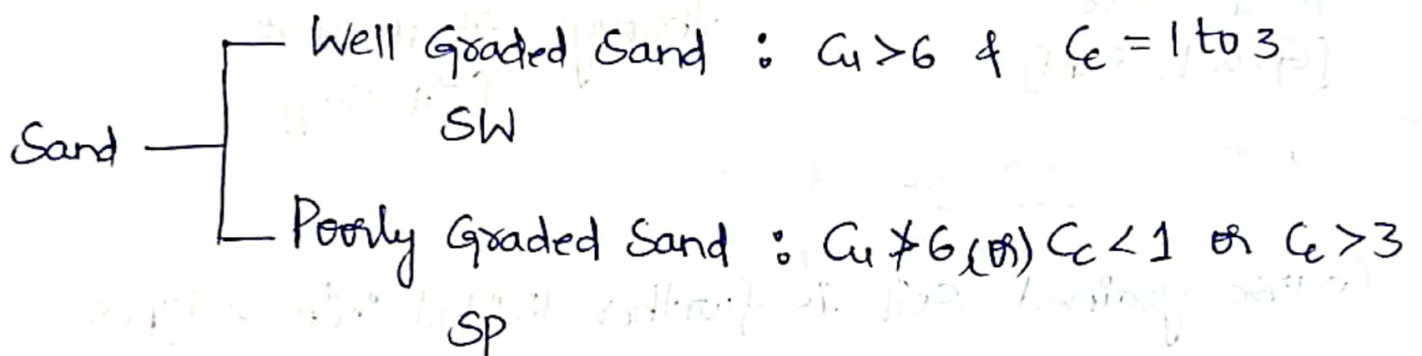 Well Graded Sand : Cu > 6 & Cc = 1 to 3
SW
Sand
Poorly Graded Sand : Cu ≯ 6 (or) Cc < 1 or Cc > 3
SP